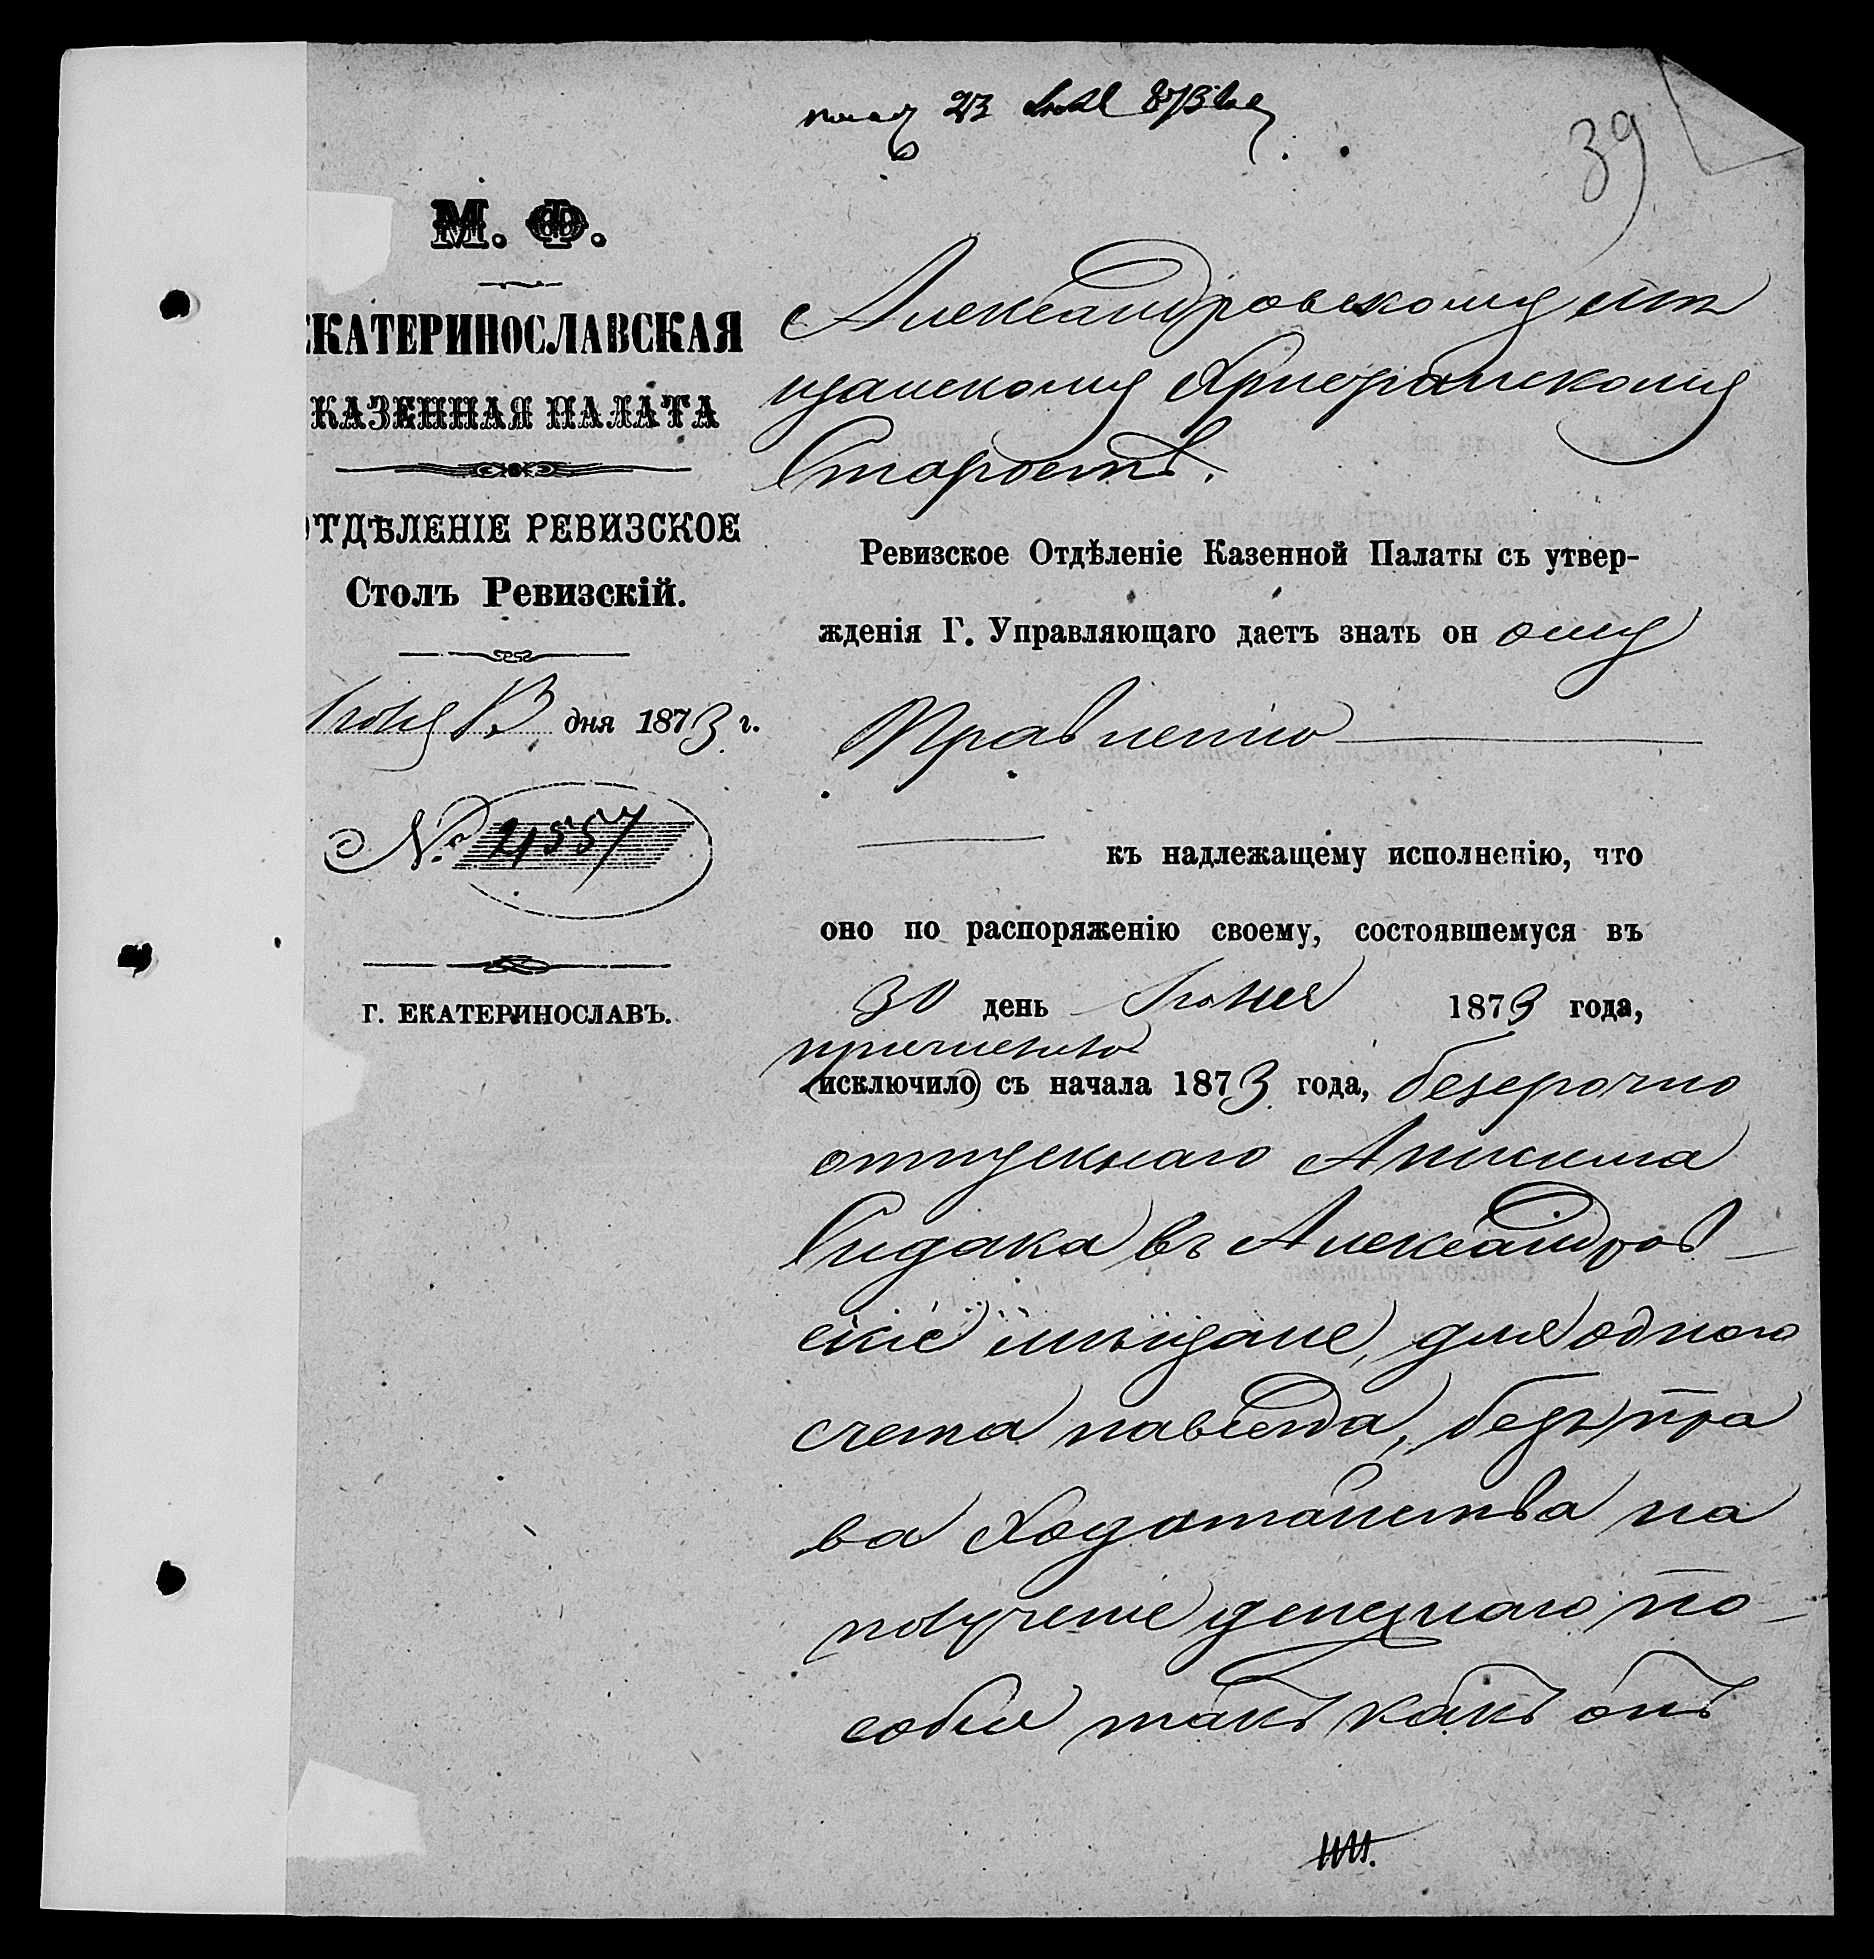 39
М. Ф.
ЕКАТЕРИНОСЛАВСКАЯ
КАЗЕННАЯ ПАЛАТА
ОТДѢЛЕНІЕ РЕВИЗСКОЕ
Столъ Ревизскій.
дня 1873 г.
№ 4557
Г. ЕКАТЕРИНОСЛАВЪ.
Александровскому мѣ
щанскому Христіанскому
Старостѣ.
Ревизское Отдѣленіе Казенной Палаты съ утвер-
жденія Г. Управляющаго даетъ знать он ому
Правленію
къ надлежащему исполненію, что
оно по распоряженію своему, состоявшемуся въ
30 день Іюня 1873 года,
причислило
(исключило) съ начала 1873 года, безсрочно
отпускнаго Анисима
Сидака въ Александров-
скіе мѣщане, для одного
счета навсегда, безъ пра
ва ходатайства на
полученіе денежнаго по-
собія такъ какъ онъ